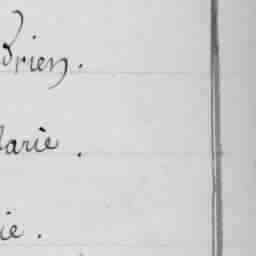 Brien.
Marie.
ie.